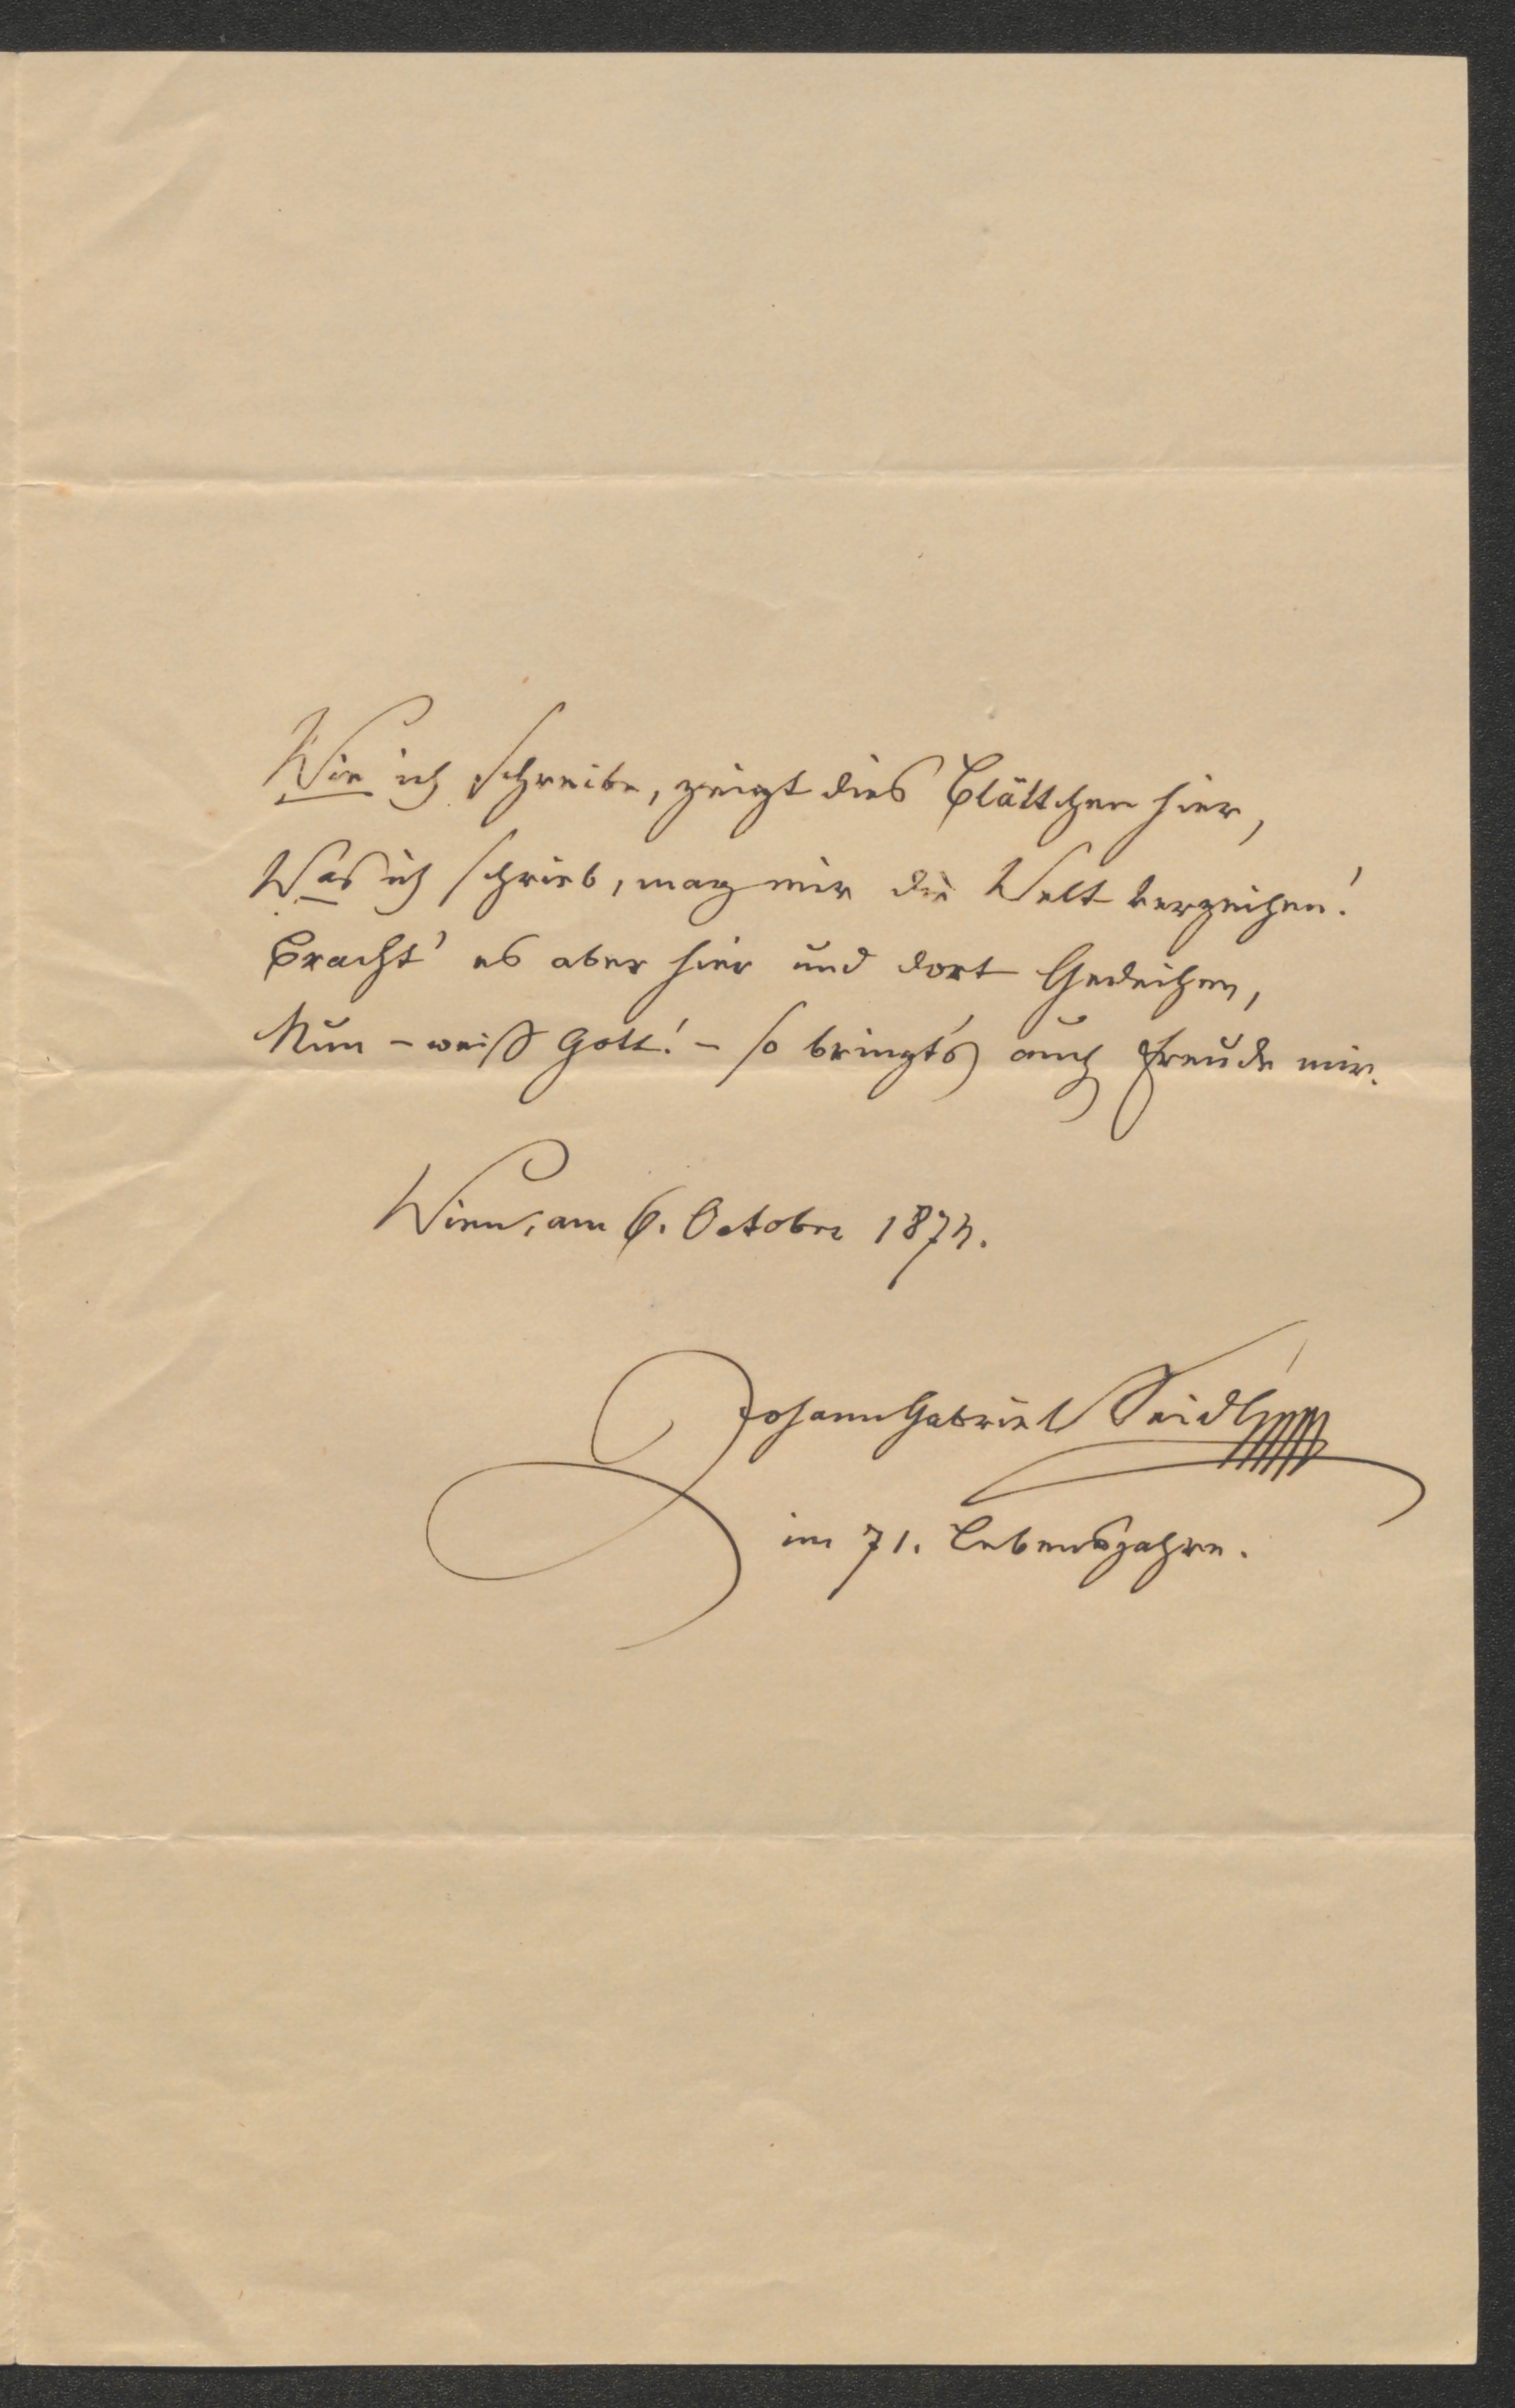 Wie ich schreibe, zeigt dies Blättchen hier,
Was ich schrieb, mag mir die Welt verzeihen!
Bracht' es aber hier und dort Gedeihen,
Nun – weiß Gott! – so bringt's auch Freude mir.
Wien, am 6. October 1874.
Johann Gabriel Seidl
im 71. Lebensjahre.